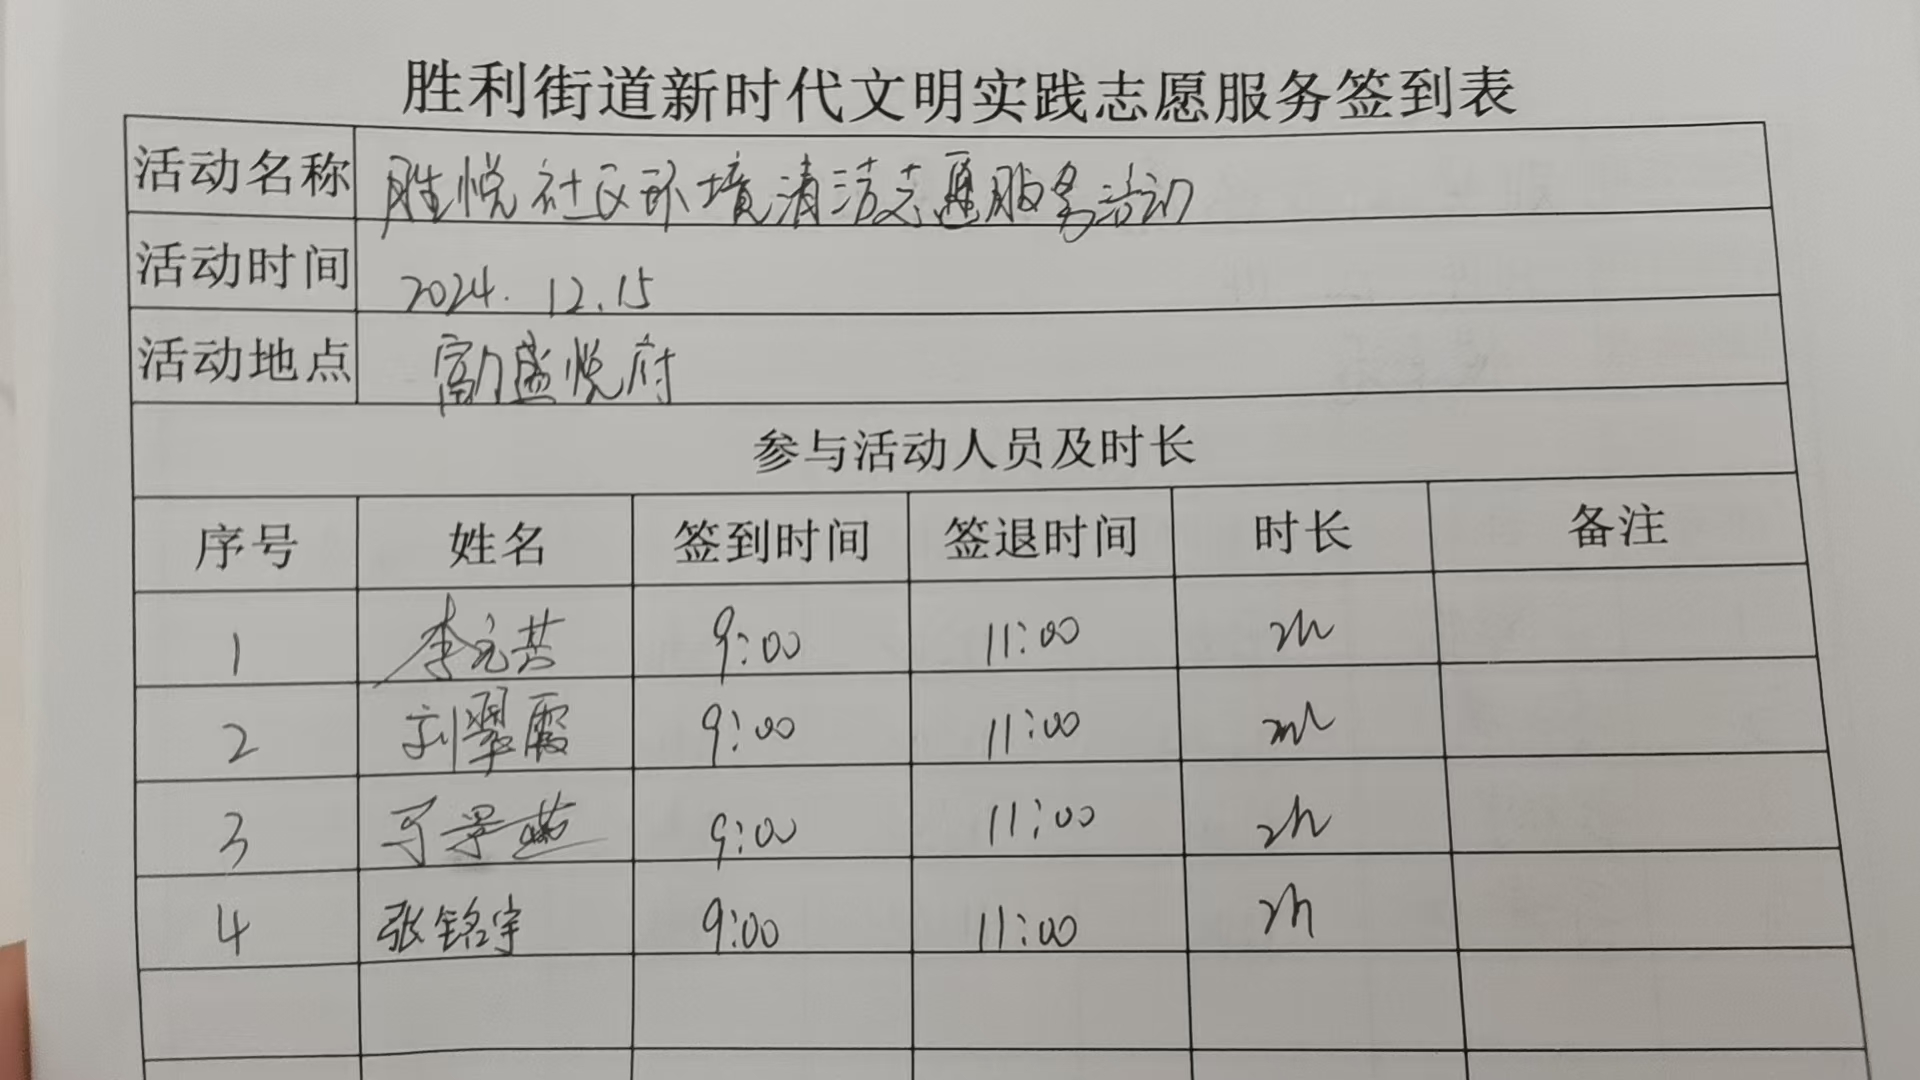 胜利街道新时代文明实践志愿服务签到表
活动名称 胜悦社区环境清洁志愿服务活动
活动时间 2024.12.15
活动地点 富力盛悦府
参与活动人员及时长
序号 姓名 签到时间 签退时间 时长 备注
1 李元芸 9:00 11:00 2h
2 刘翠霞 9:00 11:00 2h
3 9:00 11:00 2h
4 张铭宇 9:00 11:00 2h